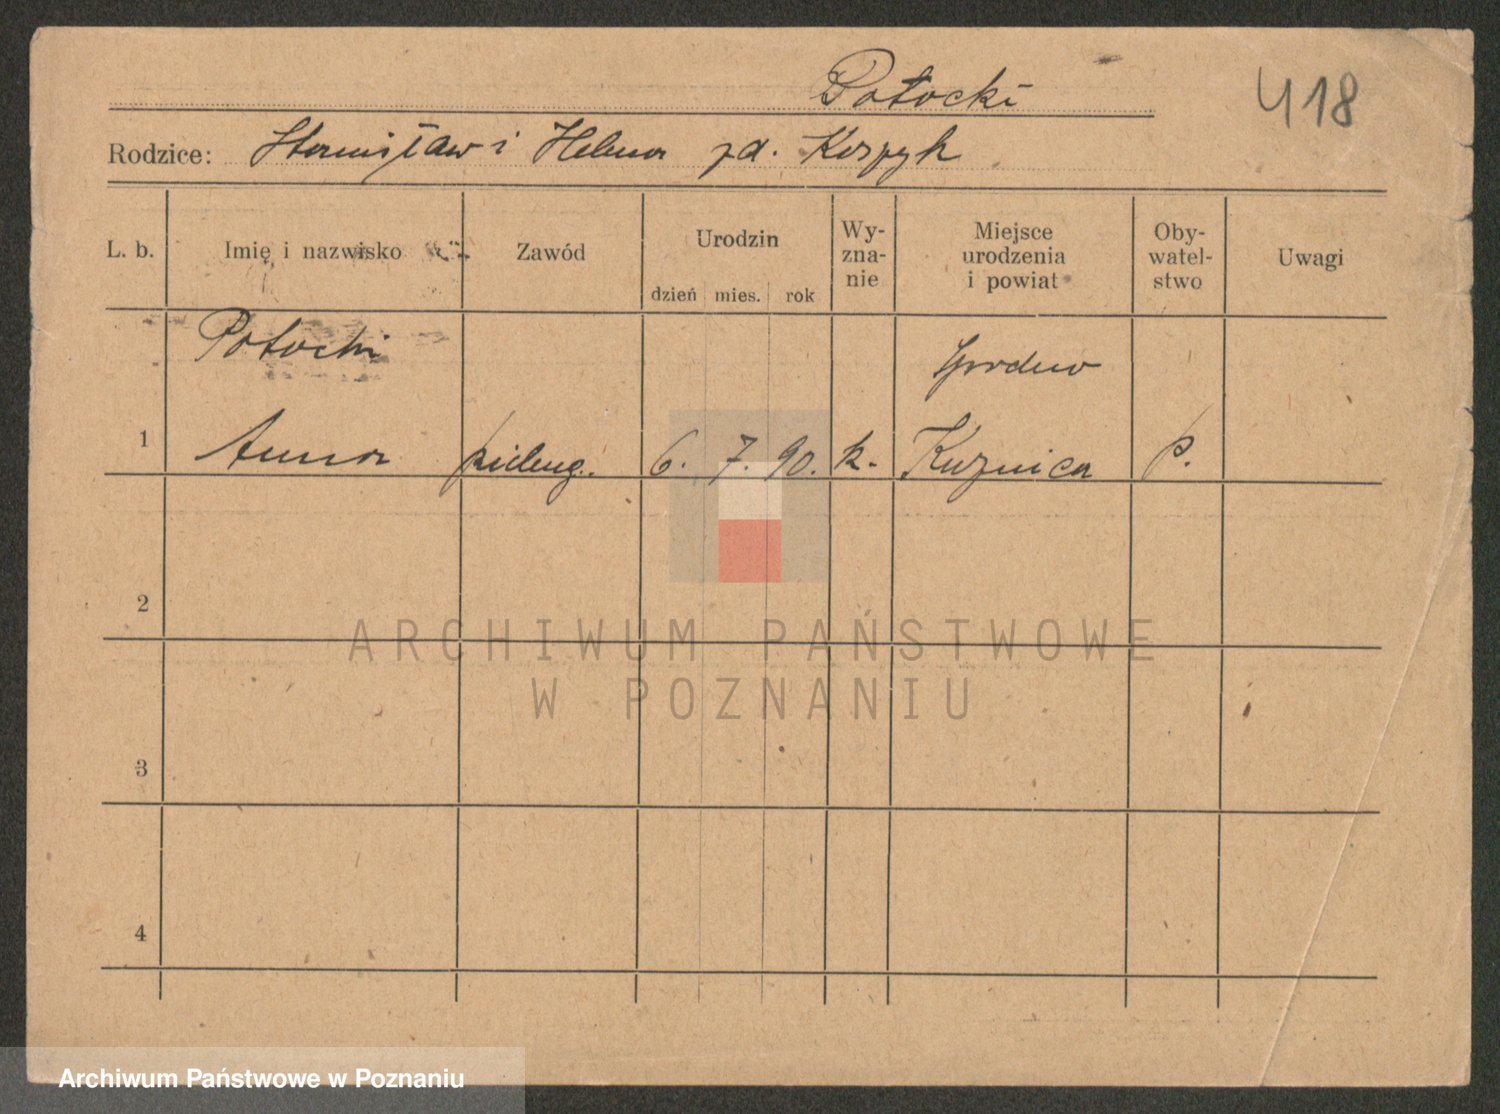 Potocki
418
Rodzice: Stanisław i Helena zd. Kospyk
L. b.
Imię i nazwisko
Zawód
Urodzin
dzień mies. rok
Wy-
zna-
nie
Miejsce
urodzenia
i powiat
Oby-
watel-
stwo
Uwagi
Potocki
Grodno
1 Anna pieleng. 6. 7. 90. k. Kuznica P.
2
3
4
ARCHIWUM PAŃSTWOWE
W POZNANIU
Archiwum Państwowe w Poznaniu